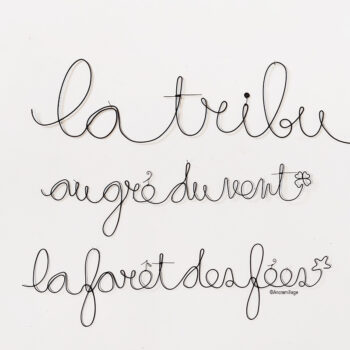 la tribu
au gré du vent
la farêt des fées
©Ancremillage